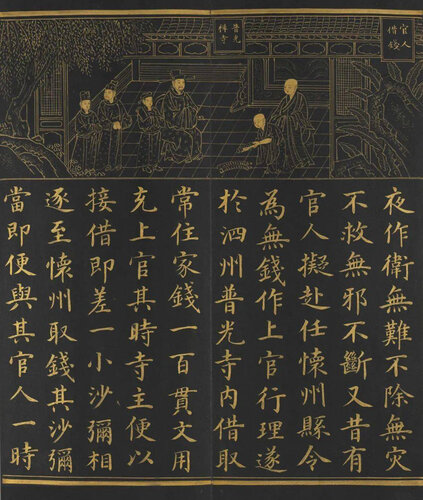 官人
借錢
普光
夜作衛無難不除無灾
不救無邪不斷又昔有
官人擬赴任懷州縣令
為無錢作上官行理遂
於泗州普光寺內借取
常住家錢一百貫文用
充上官其時寺主便以
接借即差一小沙彌相
逐至懷州取錢其沙彌
當即便與其官人一時